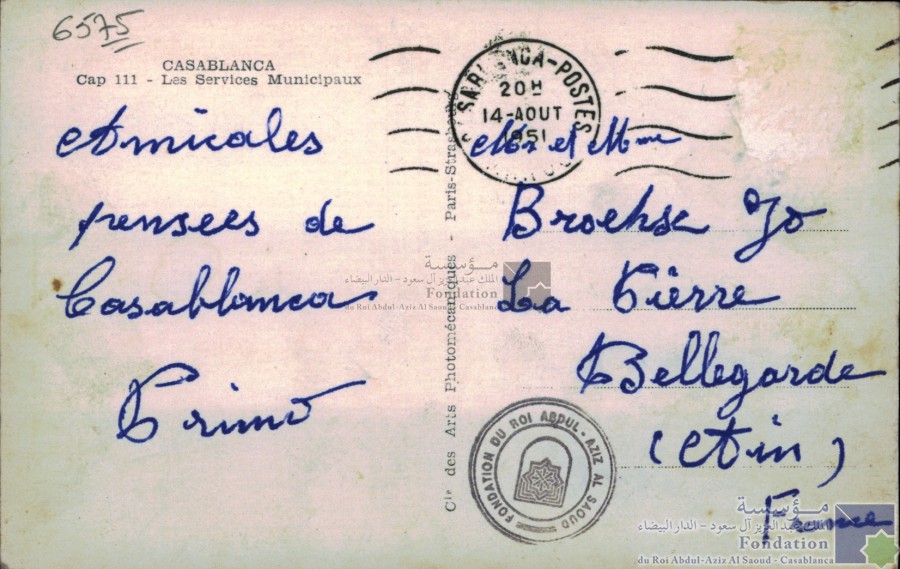 6575
CASABLANCA
Cap 111 - Les Services Municipaux
Amicales
pensees de
Casablanca
Primo
Cie des Arts Photomécaniques - Paris-Strasbourg
CASABLANCA-POSTES
20H
14-AOUT
1951
MAROC
Mr et Mme
Brochse Jo
La Pierre
Bellegarde
(Ain)
France
FONDATION DU ROI ABDUL-AZIZ AL SAOUD
مؤسسة
الملك عبد العزيز آل سعود - الدار البيضاء
Fondation
du Roi Abdul-Aziz Al Saoud - Casablanca
مؤسسة
الملك عبد العزيز آل سعود - الدار البيضاء
Fondation
du Roi Abdul-Aziz Al Saoud - Casablanca